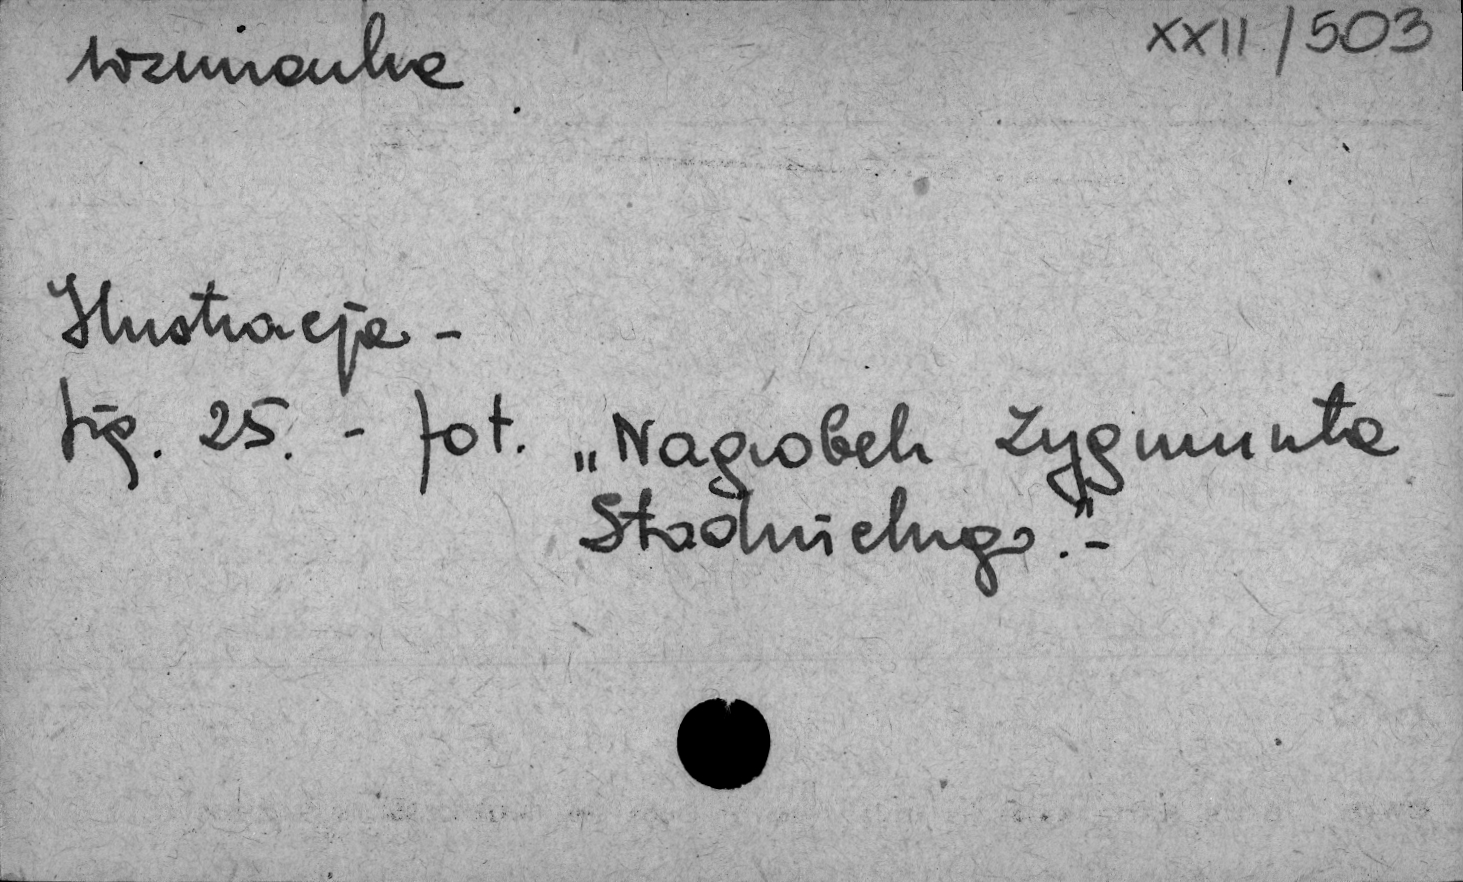 wzmianka
XXII/503
Ilustracja -
fig. 25. - fot. „Nagrobek Zygmunta
Stadnickiego."-